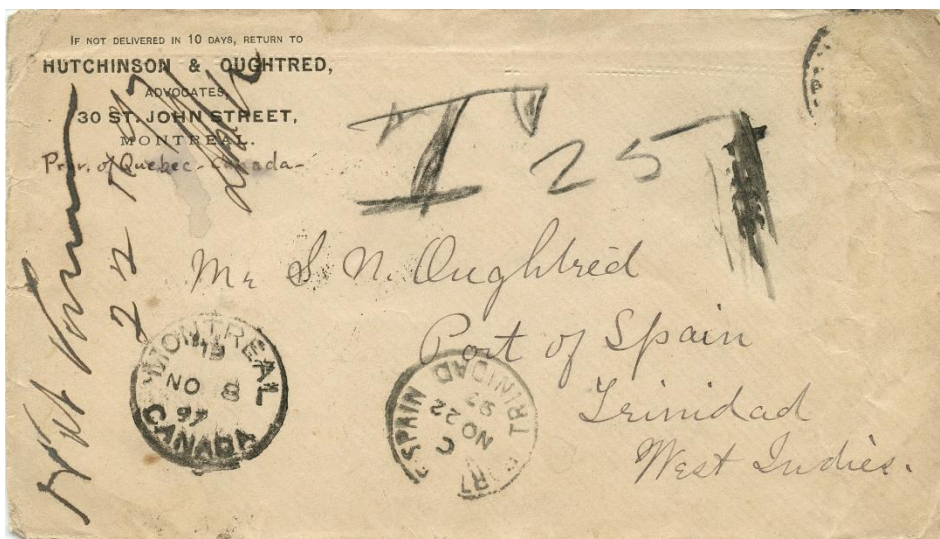 IF NOT DELIVERED IN 10 DAYS, RETURN TO
HUTCHINSON & OUGHTRED,
ADVOCATES,
30 ST. JOHN STREET,
MONTREAL.
Prov. of Quebec - Canada -
T 25
Mr S. N. Oughtred
Port of Spain
Trinidad
West Indies.
MONTREAL
19
NO 8
97
CANADA
SPAIN
TRINIDAD
C
NO 22
97
Not
22